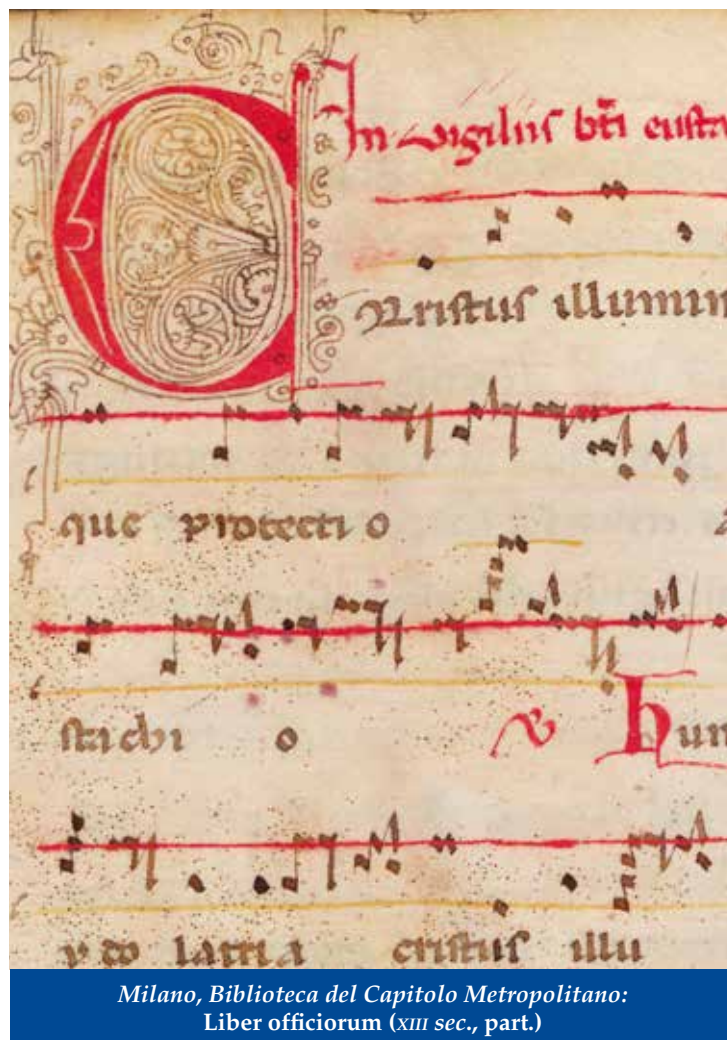 In vigiliis bti eusta
Cristus illumin
que protecti o
stachi o hun
lactea cristus illu
Milano, Biblioteca del Capitolo Metropolitano:
Liber officiorum (XIII sec., part.)